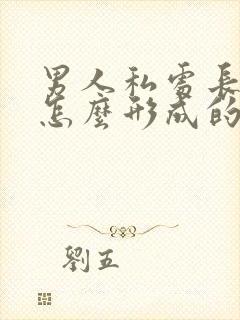 男人私雷長
怎麼形成的
劉五